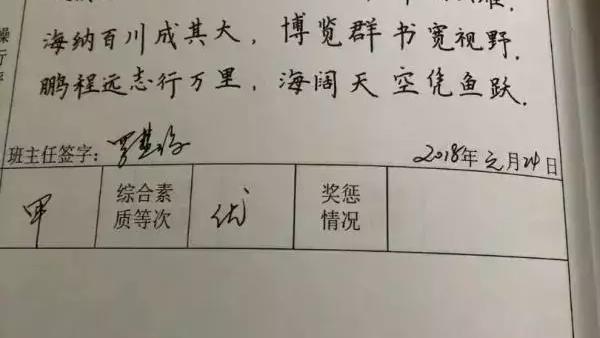 海纳百川成其大，博览群书宽视野．
鹏程远志行万里，海阔天空凭鱼跃．
班主任签字：
2018年元月24日
甲 综合素质等次 优 奖惩情况